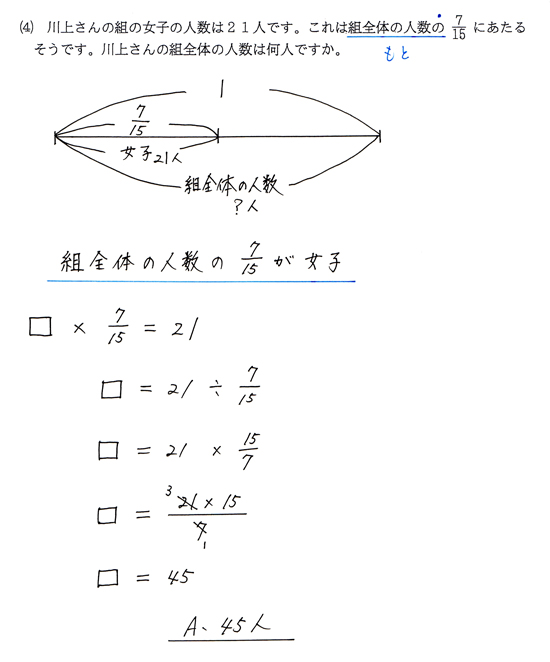 ⑷ 川上さんの組の女子の人数は２１人です。これは組全体の人数の 7/15 にあたる
そうです。川上さんの組全体の人数は何人ですか。
もと
1
7/15
女子21人
組全体の人数
?人
組全体の人数の 7/15 が女子
□ × 7/15 = 21
□ = 21 ÷ 7/15
□ = 21 × 15/7
□ = 21 × 15 / 7
3
1
□ = 45
A、45人